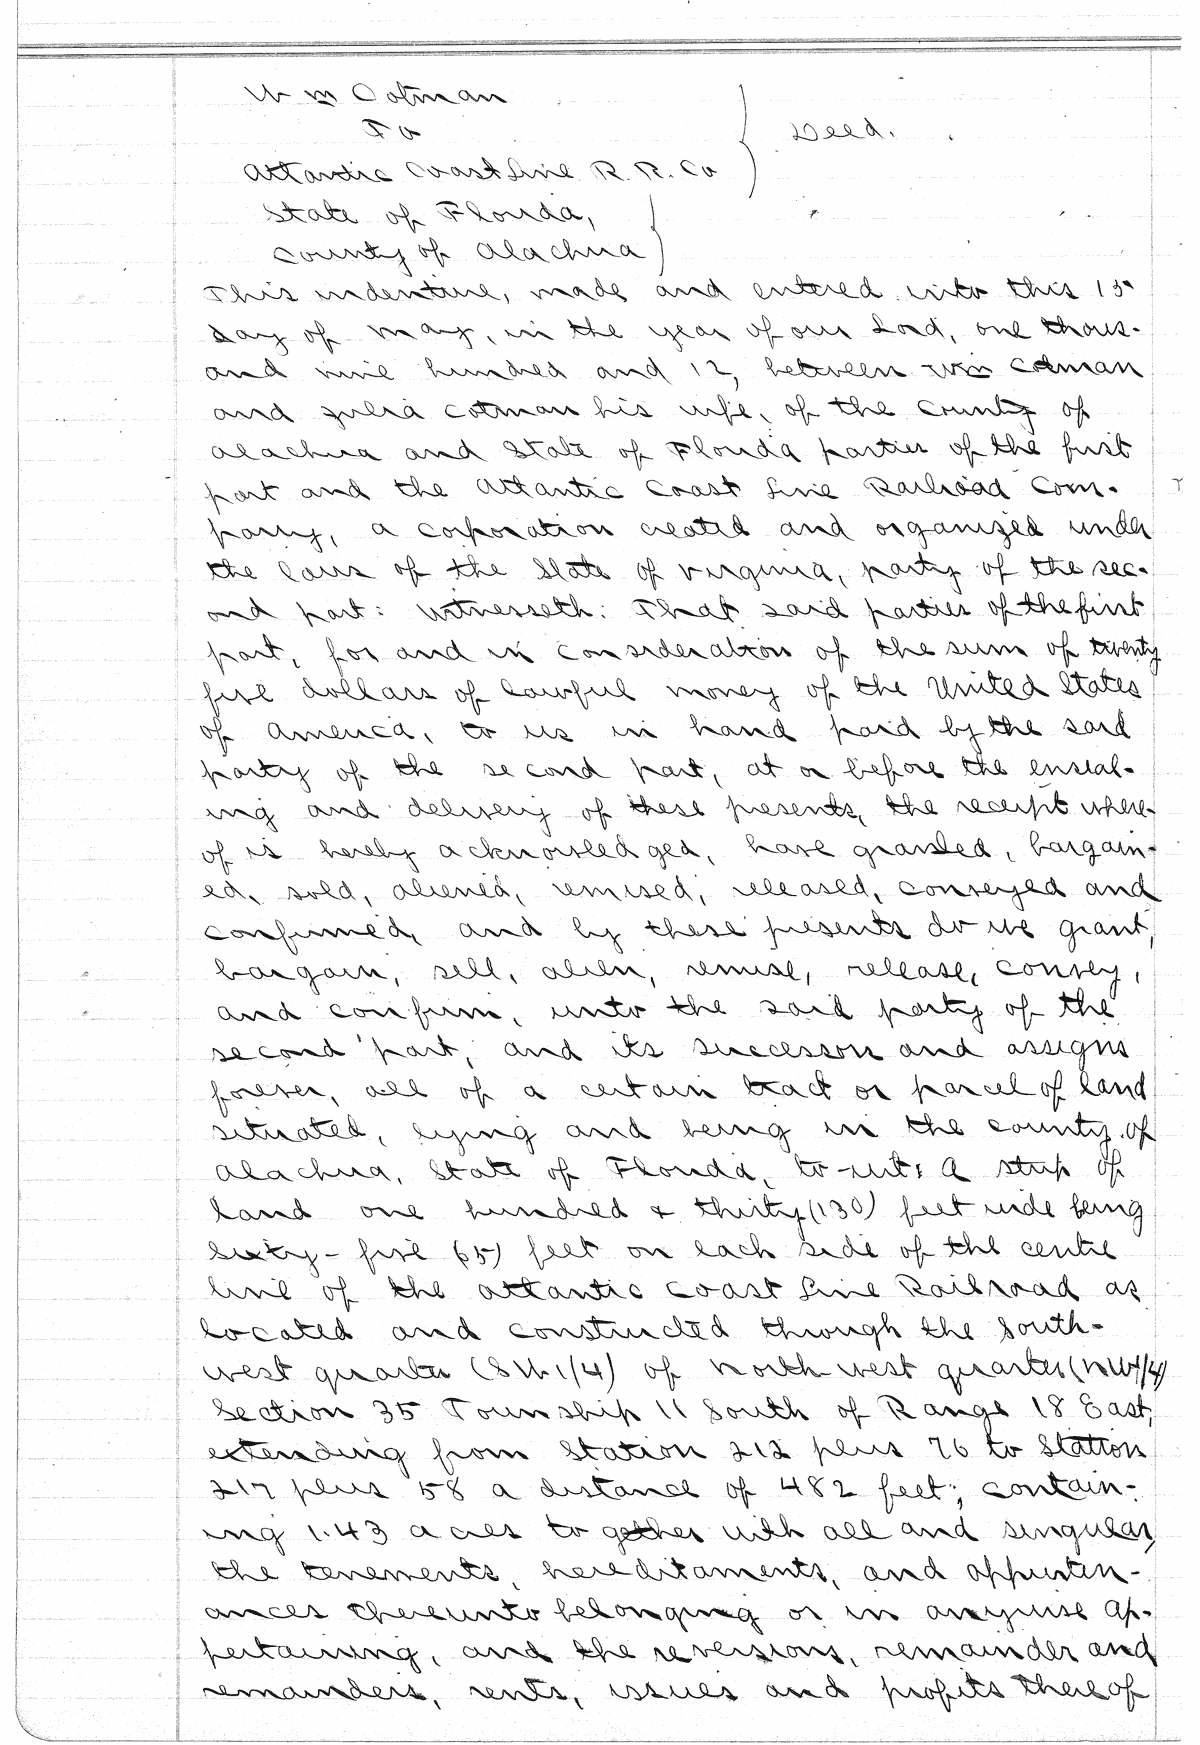 Wm Cotman
To
Deed.
Atlantic Coast Line R. R. Co
State of Florida,
County of Alachua
This indenture, made and entered into this 15"
day of May, in the year of our Lord, one thous-
and nine hundred and 12, between Wm Cotman
and Julia Cotman his wife, of the County of
Alachua and State of Florida parties of the first
part and the Atlantic Coast Line Railroad Com-
pany, a corporation created and organized under
the laws of the State of Virginia, party of the sec-
ond part: Witnesseth: That said parties of the first
part, for and in consideration of the sum of twenty
five dollars of lawful money of the United States
of America, to us in hand paid by the said
party of the second part, at or before the enseal-
ing and delivery of these presents, the receipt where-
of is hereby acknowledged, have granted, bargain-
ed, sold, aliened, remised, released, conveyed and
confirmed, and by these presents do we grant,
bargain, sell, alien, remise, release, convey,
and confirm, unto the said party of the
second part, and its successors and assigns
forever, all of a certain tract or parcel of land
situated, lying and being in the county of
Alachua, State of Florida, to-wit: A strip of
land one hundred & thirty (130) feet wide being
Sixty-five 65) feet on each side of the centre
line of the Atlantic Coast Line Railroad as
located and constructed through the South-
west quarter (SW1/4) of North-west quarter (NW1/4)
Section 35 Township 11 South of Range 18 East,
extending from Station 212 plus 76 to Station
217 plus 58 a distance of 482 feet; contain-
ing 1.43 acres together with all and singular,
the tenements, hereditaments, and appurten-
ances thereunto belonging or in anywise ap-
pertaining, and the reversions, remainder and
remainders, rents, issues and profits thereof